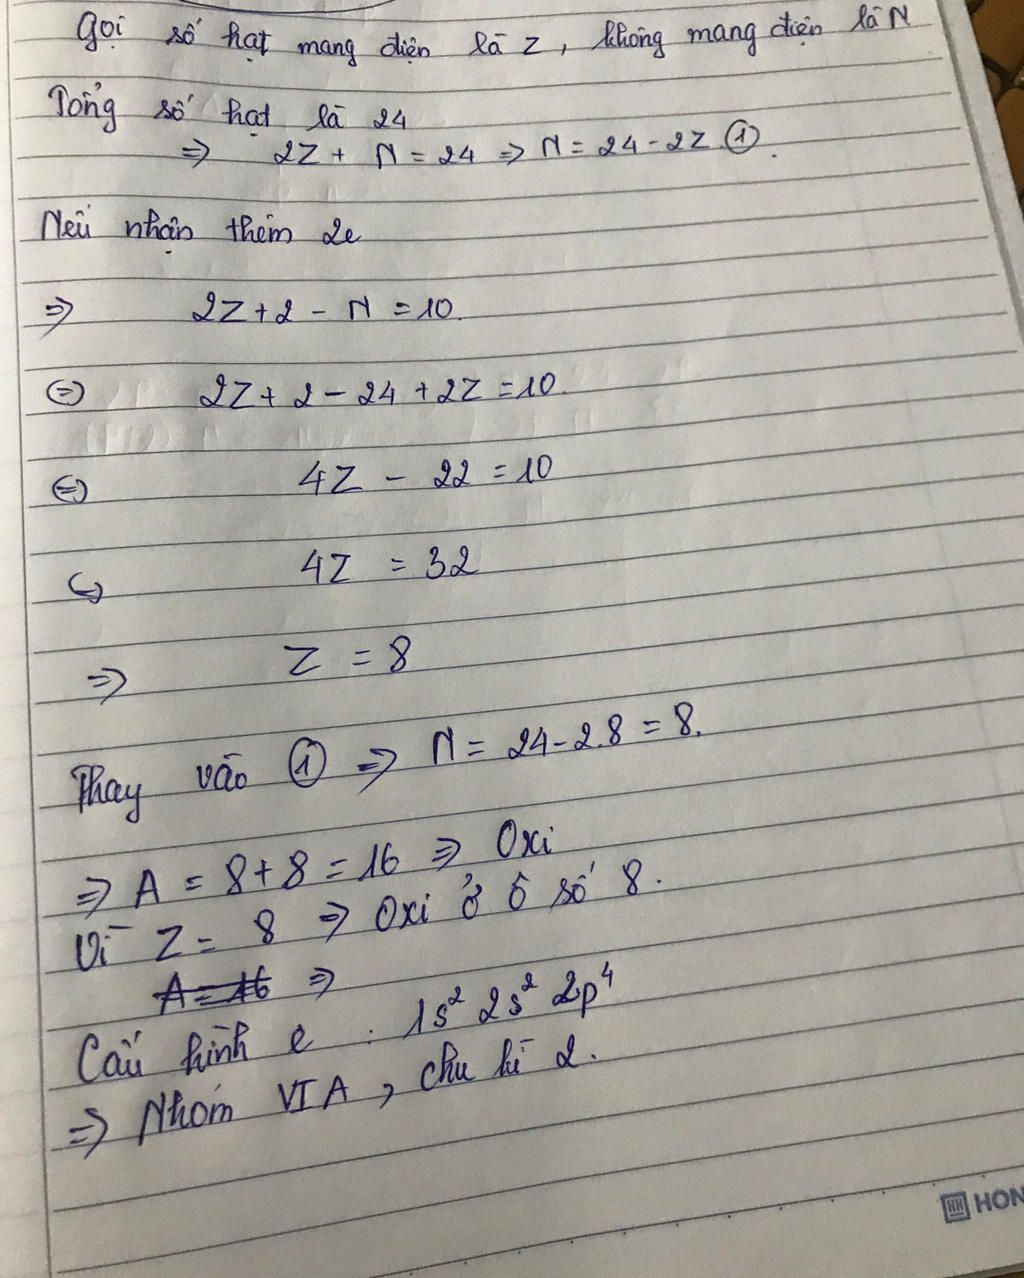 Gọi số hạt mang điện là Z, không mang điện là N
Tổng số hạt là 24
=> 2Z + N = 24 => N = 24 - 2Z ①.
Nếu nhận thêm 2e
=> 2Z + 2 - N = 10.
(=) 2Z + 2 - 24 + 2Z = 10.
(=) 4Z - 22 = 10
4Z = 32
=> Z = 8
Thay vào ① => N = 24 - 2.8 = 8.
=> A = 8 + 8 = 16 => Oxi
Vì Z = 8 => Oxi ở ô số 8.
A = 16 =>
Cấu hình e : 1s² 2s² 2p⁴
=> Nhóm VIA, chu kì 2.
HH HON